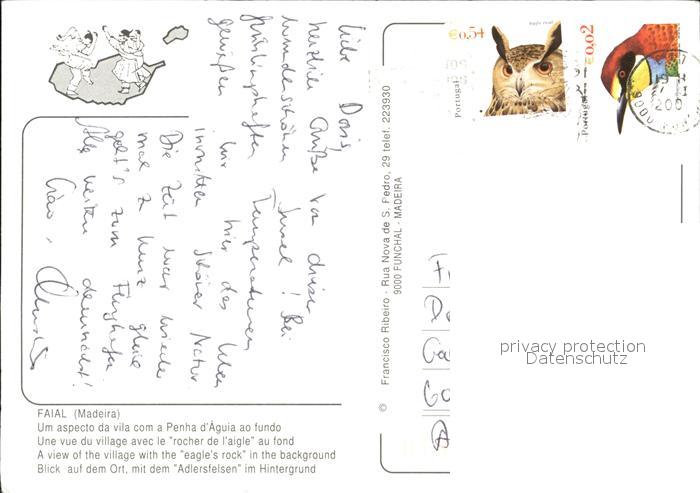 Liebe Doris,
herzliche Grüße von dieser
wunderschönen Insel! Bei
frühlingshaften Temperaturen
genießen wir hier das Leben
inmitten schöner Natur.
Die Zeit war wieder
mal zu kurz, gleich
geht's zum Flughafen.
Alles weitere demnächst!
Ciao,
FAIAL (Madeira)
Um aspecto da vila com a Penha d'Águia ao fundo
Une vue du village avec le "rocher de l'aigle" au fond
A view of the village with the "eagle's rock" in the background
Blick auf dem Ort, mit dem "Adlersfelsen" im Hintergrund
© Francisco Ribeiro - Rua Nova de S. Pedro, 29 telef. 223930
9000 FUNCHAL - MADEIRA
€0,54
Portugal
€0,02
Portugal
privacy protection
Datenschutz